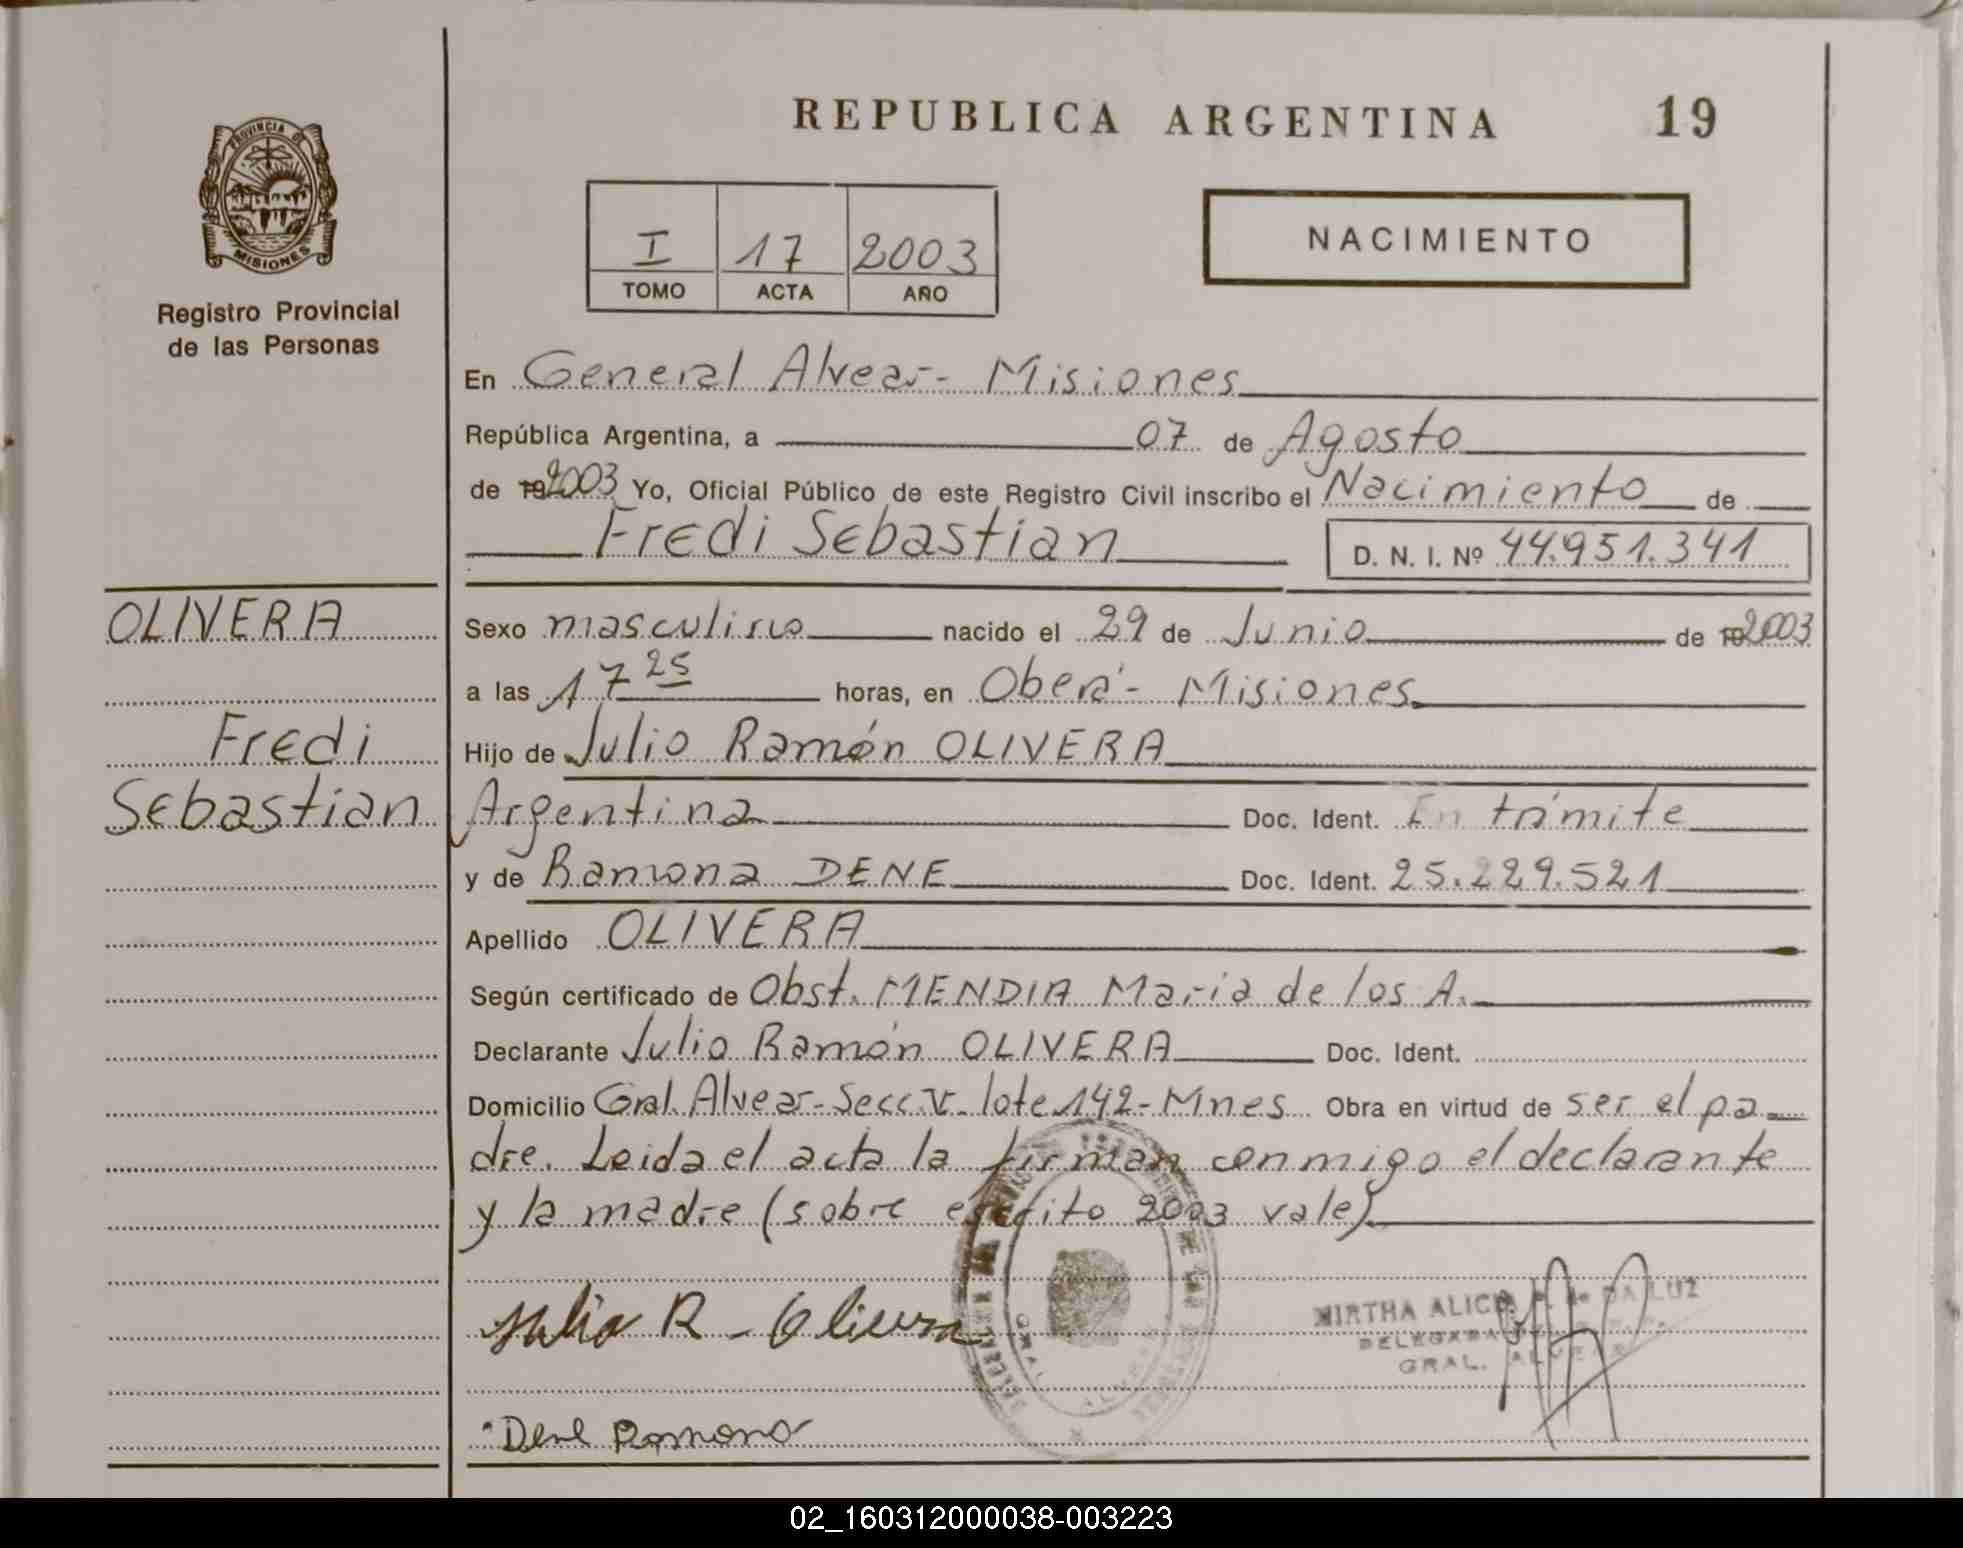 REPUBLICA ARGENTINA 19
PROVINCIA DE
MISIONES
Registro Provincial
de las Personas
I 17 2003
TOMO ACTA AÑO
NACIMIENTO
En General Alvear - Misiones
República Argentina, a 07 de Agosto
de 192003 Yo, Oficial Público de este Registro Civil inscribo el Nacimiento de
Fredi Sebastian D. N. I. Nº 44.951.341
OLIVERA
Fredi
Sebastian
Sexo masculino nacido el 29 de Junio de 192003
a las 17 25 horas, en Oberá - Misiones
Hijo de Julio Ramón OLIVERA
Argentina Doc. Ident. En trámite
y de Ramona DENE Doc. Ident. 25.229.521
Apellido OLIVERA
Según certificado de Obst. MENDIA Maria de los A.
Declarante Julio Ramón OLIVERA Doc. Ident.
Domicilio Gral. Alvear - Secc. V - lote 142 - Mnes Obra en virtud de ser el pa
dre. Leida el acta la firman conmigo el declarante
y la madre (sobre escrito 2003 vale)
Julio R - Olivera
MIRTHA ALICIA DA LUZ
DELEGADA
GRAL. ALVEAR
Dene Ramona
02_160312000038-003223